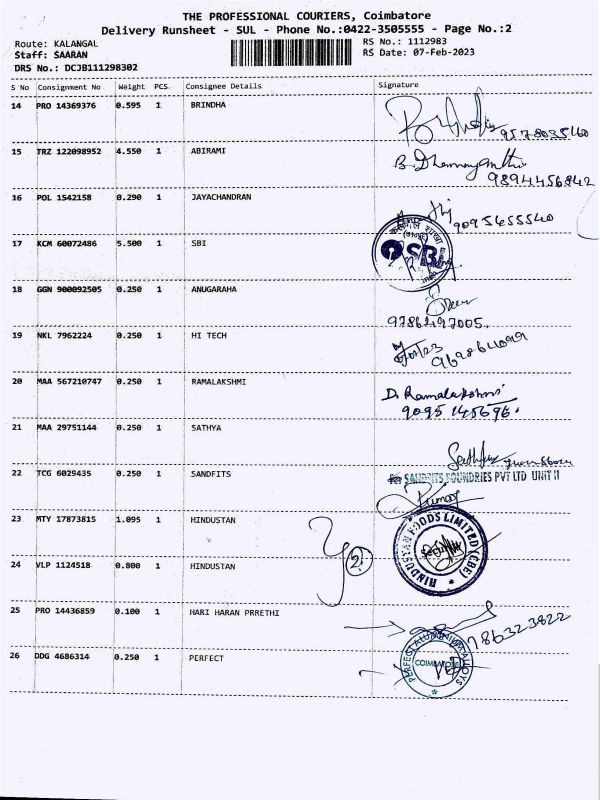 THE PROFESSIONAL COURIERS, Coimbatore
Delivery Runsheet - SUL - Phone No.:0422-3505555 - Page No.:2
Route: KALANGAL RS No.: 1112983
Staff: SAARAN RS Date: 07-Feb-2023
DRS No.: DCJB111298302
S No Consignment No Weight PCS Consignee Details Signature
14 PRO 14369376 0.595 1 BRINDHA
15 TRZ 122098952 4.550 1 ABIRAMI
9894456842
16 POL 1542158 0.290 1 JAYACHANDRAN
9095455540
17 KCM 60072486 5.500 1 SBI
SBI
18 GGN 900092505 0.250 1 ANUGARAHA
9786497005.
19 NKL 7962224 0.250 1 HI TECH
20 MAA 567210747 0.250 1 RAMALAKSHMI
D. Ramalakshmi
9095145696.
21 MAA 29751144 0.250 1 SATHYA
22 TCG 6029435 0.250 1 SANDFITS
SANDFITS FOUNDRIES PVT LTD UNIT II
23 MTY 17873815 1.095 1 HINDUSTAN
HINDUSTAN FOODS LIMITED (CBE)
24 VLP 1124518 0.800 1 HINDUSTAN
2
25 PRO 14436859 0.100 1 HARI HARAN PRRETHI
26 DDG 4686314 0.250 1 PERFECT
COIMBATORE